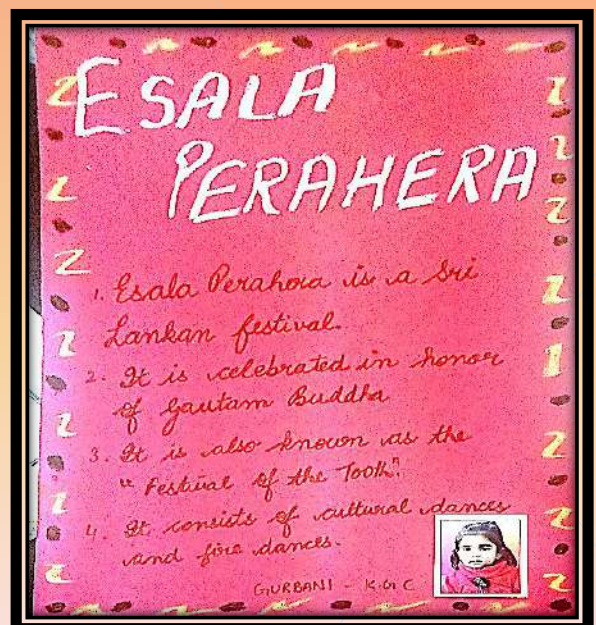 ESALA
PERAHERA
1. Esala Perahera is a Sri
Lankan festival.
2. It is celebrated in honor
of Gautam Buddha
3. It is also known as the
"Festival of the Tooth".
4. It consists of cultural dances
and fire dances.
GURBANI - K.G C